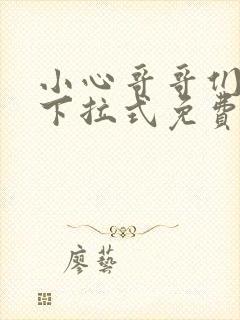 小心哥哥们
下拉式免费
廖藝